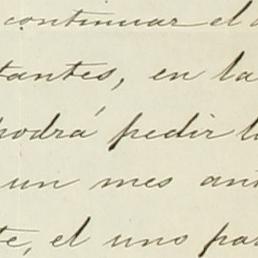 continuar el
tantes, en la
podrá pedir l
un mes an
te, el uno par